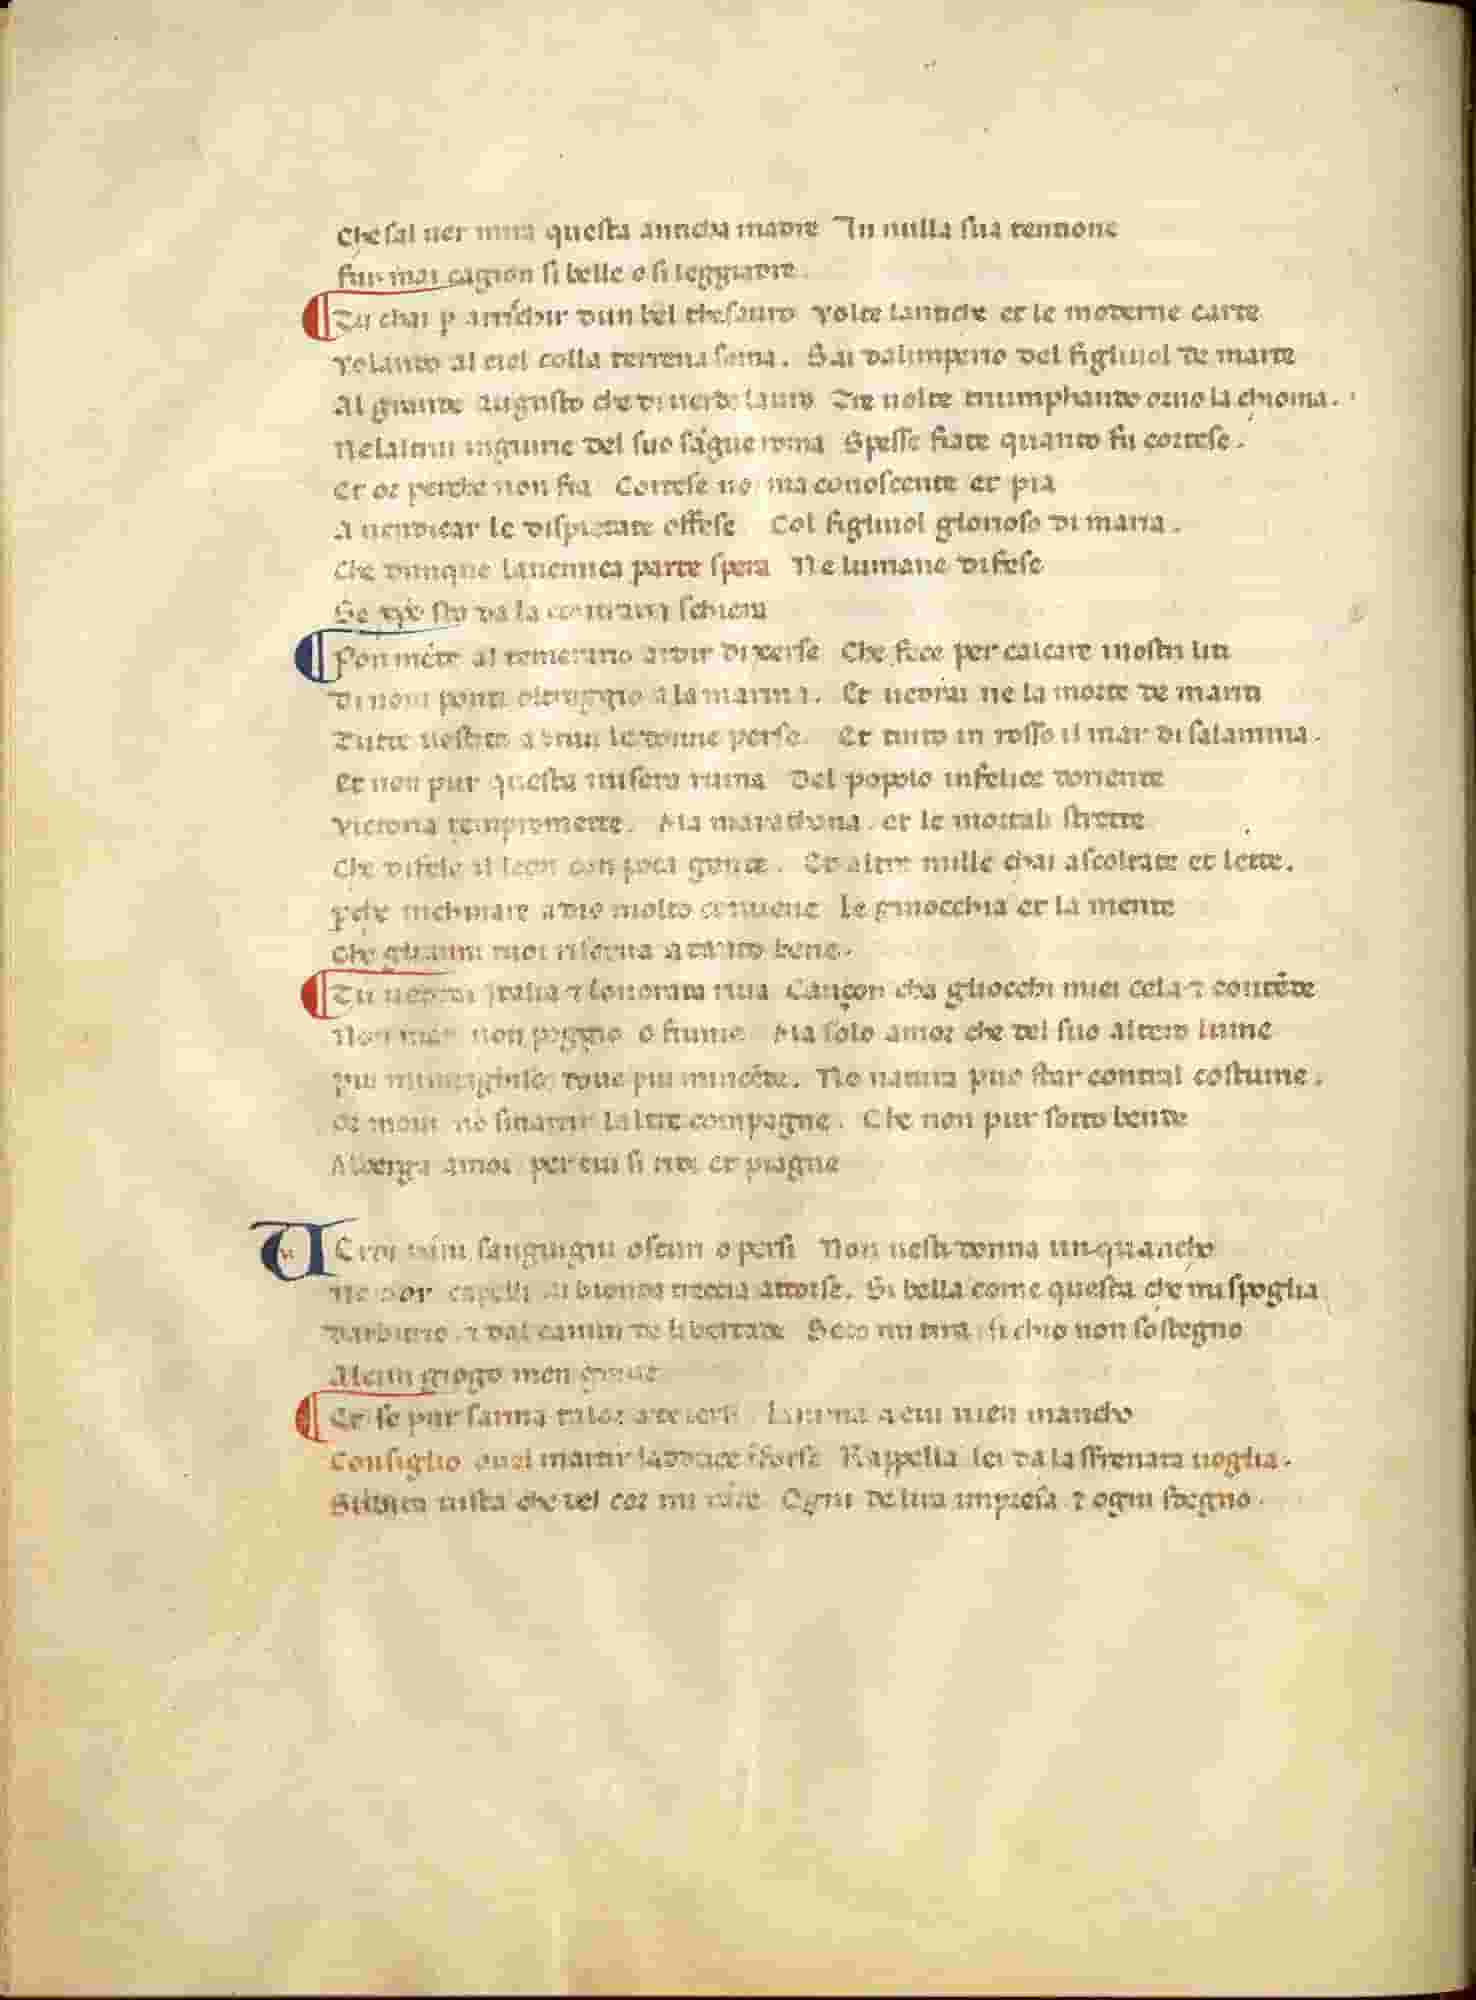 Che sal ver mira questa anticha madre In nulla sua tentione
fur mai cagion si belle o si leggiadre.
Tu chai p arrichir dun bel thesauro Volte lantiche et le moderne carte
Volando al ciel colla terrena soma. Sai dalimperio del figliuol de marte
Al grande augusto che di uerde lauro Tre uolte triumphando orno la chioma.
Nelaltrui ingiurie del suo sāgue roma Spesse fiate quanto fu cortese.
Et or perche non fia Cortese no ma conoscente et pia
A uendicar le dispietate offese Col figliuol glorioso di maria.
Che dunque lanemica parte spera Ne lumane difese
Se xpo sta da la contraria schiera
Pon mēte al temerario ardir di xerse Che fece per calcare inostri liti
Di noui ponti oltraggio a la marina. Et uedrai ne la morte de mariti
Tutte uestite a brun le donne perse. Et tinto in rosso il mar di salamina.
Et non pur questa misera ruina Del popolo infelice doriente
Victoria tempromette. Ma marathona. et le mortali strette
Che difese il leon con poca gente. Et altre mille chai ascoltate et lette.
pche inchinare a dio molto conuene Le ginocchia et la mente
Che gli anni tuoi riserua a tanto bene.
Tu uedrai ytalia ⁊ lonorata riua Cançon cha gliocchi miei cela ⁊ contēde
Non mar non poggio o fiume Ma solo amor che del suo altero lume
piu minuaghisce doue piu mincēde. Ne natura puo star contral costume.
Or moui nō smarrir laltre compagne. Che non pur sotto bende
Alberga amor per cui si ride et piagne

Verdi pāni sanguigni oscuri o persi Non uesti donna unquancho
Ne dor capelli in bionda treccia attorse. Si bella come questa che mi spoglia
Darbitrio. ⁊ dal camin de libertade Seco mi tira si chio non sostegno
Alcun giogo men graue
Et se pur sarma talor a dolersi Lanima a cui uien mancho
Consiglio ouel martir laduce īforse Rappella lei da la sfrenata uoglia.
Subita uista che del cor mi rade Ogni delira impresa ⁊ ogni sdegno